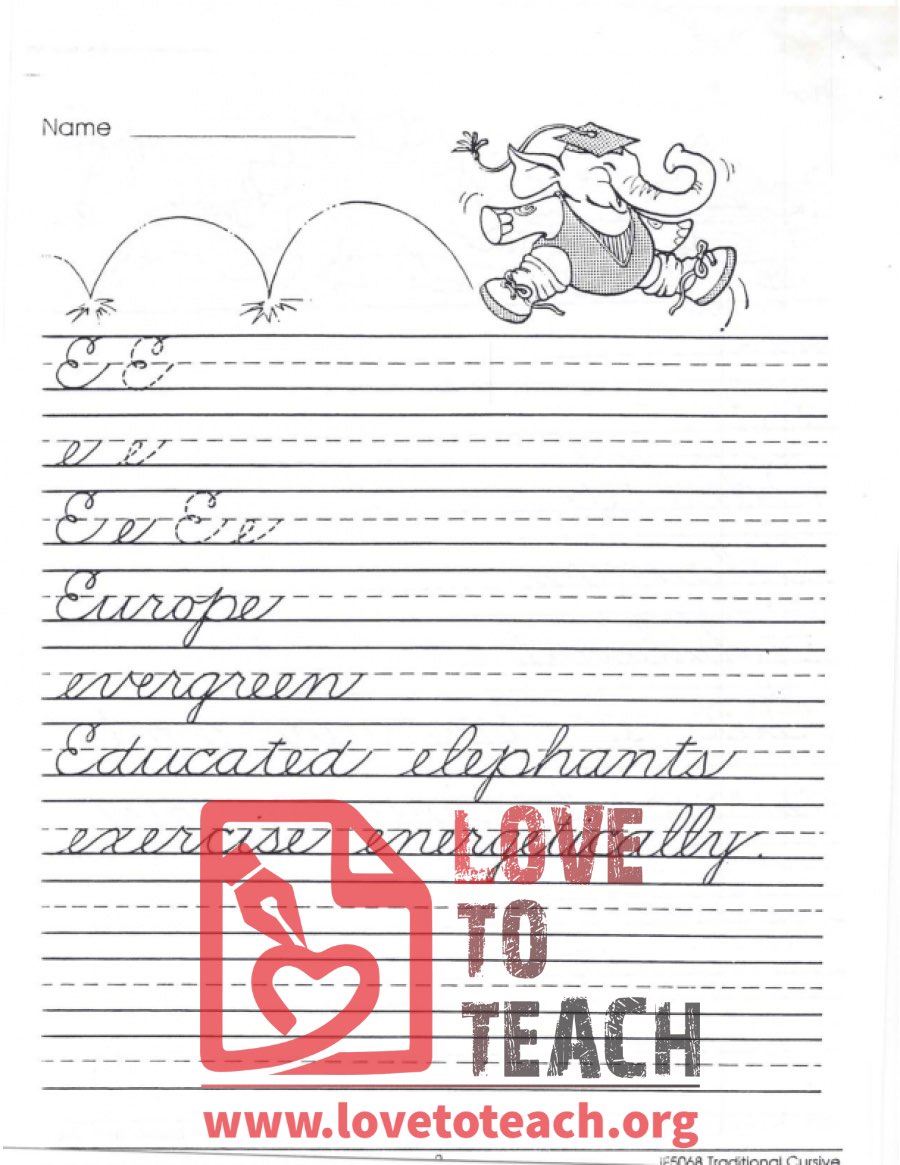 Name
E E
e e
E e E e
Europe
evergreen
Educated elephants
exercise energetically.
LOVE
TO
TEACH
www.lovetoteach.org
IF5068 Traditional Cursive